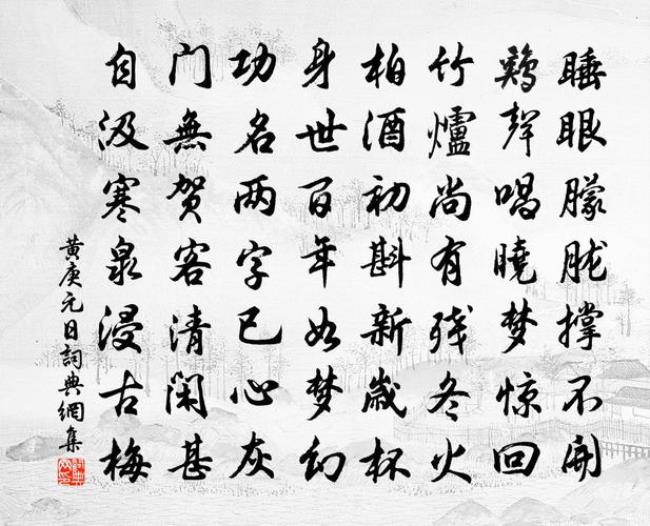 睡眼朦胧撑不开
鸡声唱晓梦惊回
竹爐尚有残冬火
柏酒初斟新歲杯
身世百年如梦幻
功名两字已心灰
门無贺客清閑甚
自汲寒泉浸古梅
黄庚元日詞典網集